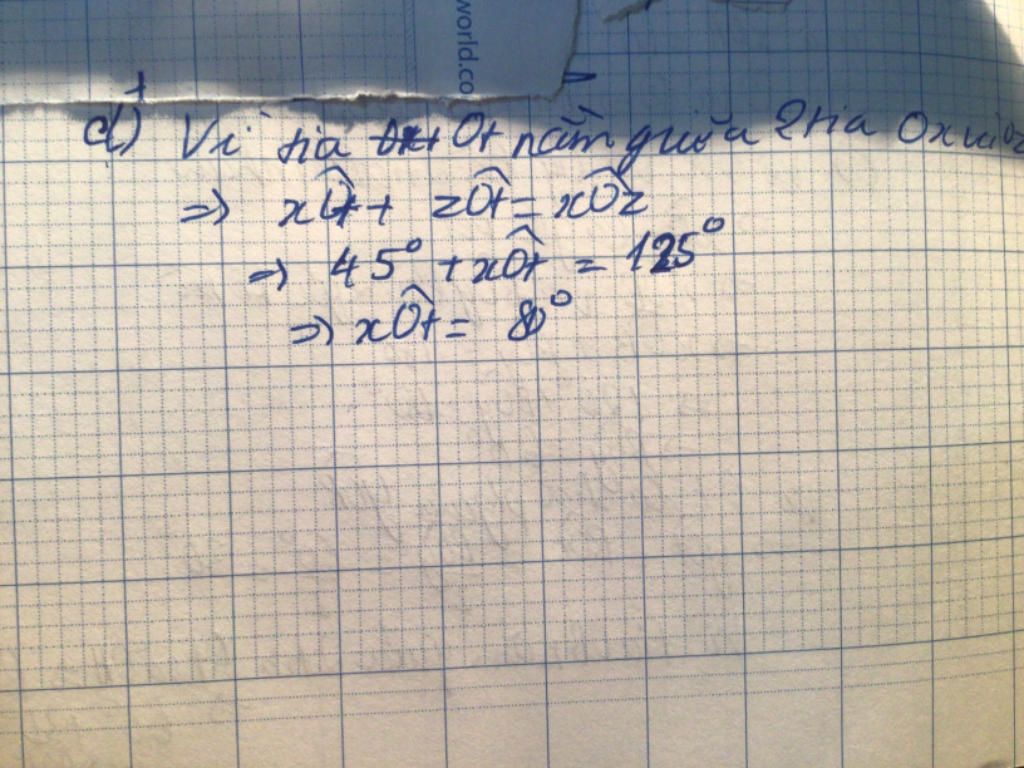 world.co
d) Vì tia Ot nằm giữa 2 tia Ox và Oz
=> xÔt + zÔt = xÔz
=> 45° + xÔt = 125°
=> xÔt = 80°